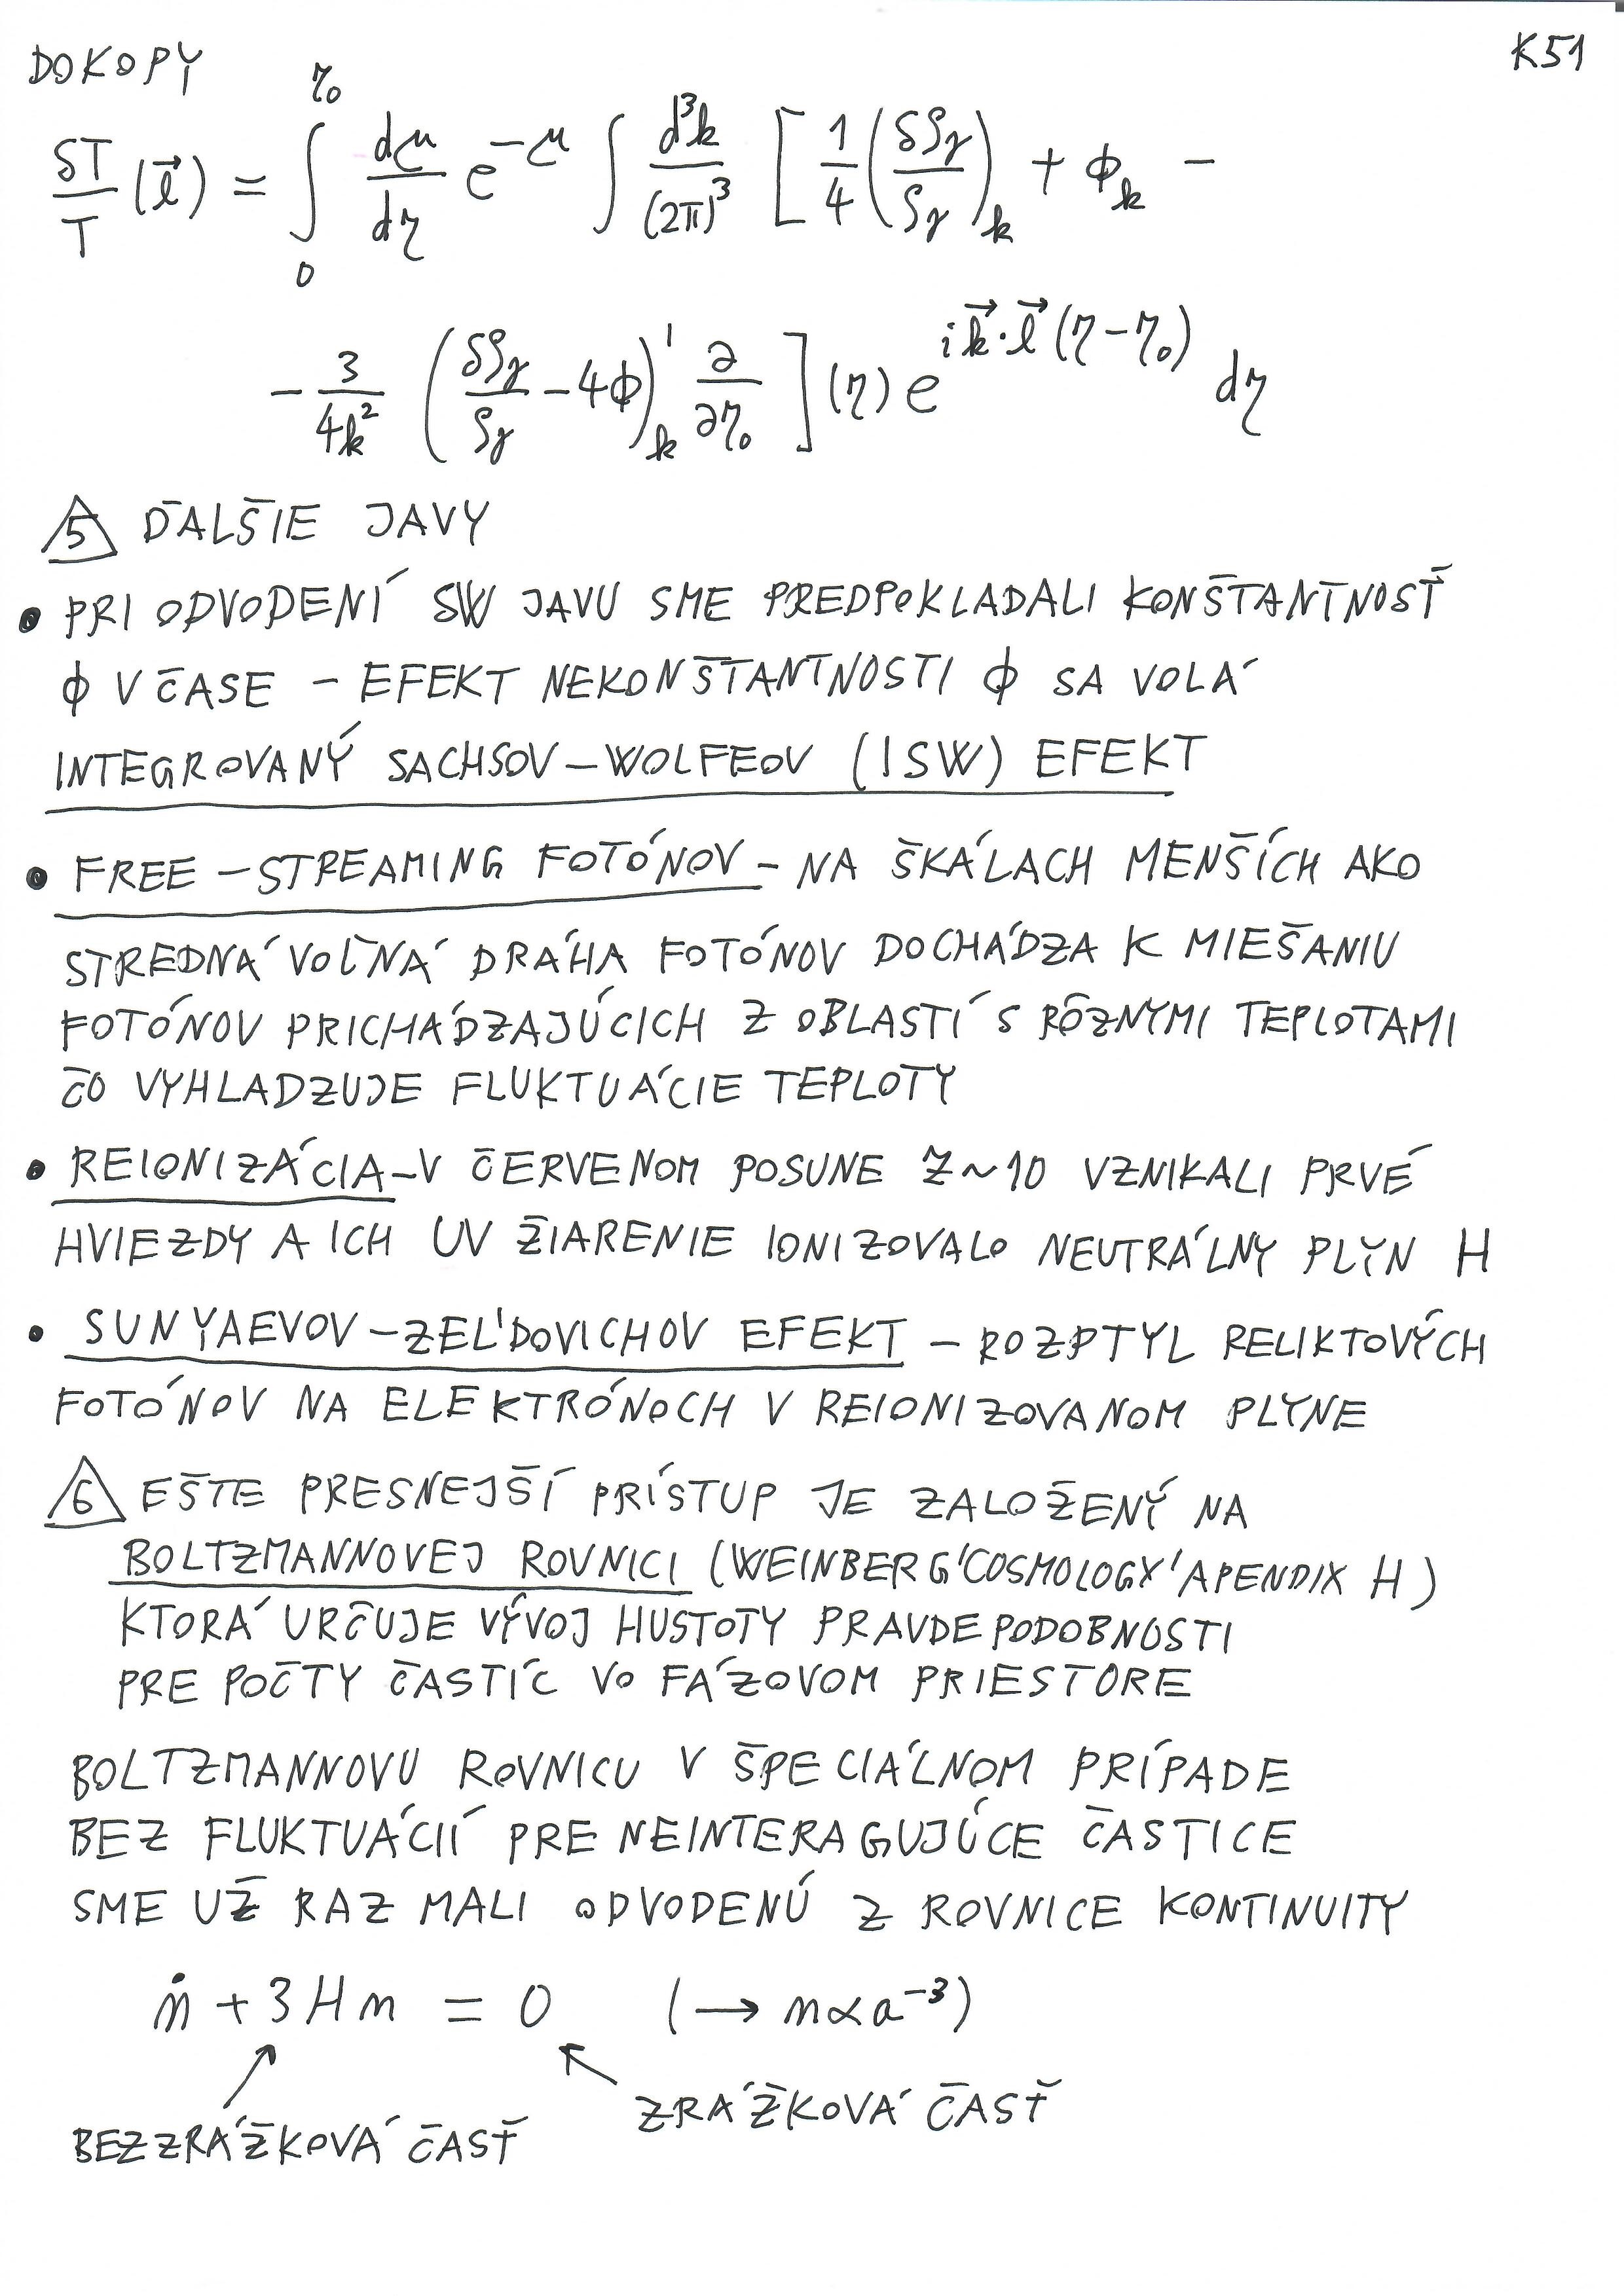 DOKOPY K51
δT/T (l⃗) = ∫₀^{η₀} dμ/dη e^{-μ} ∫ d³k/(2π)³ [ 1/4 (δρ_γ/ρ_γ)_k + ϕ_k -
- 3/4k² (δρ_γ/ρ_γ - 4ϕ)'_k ∂/∂η₀ ] (η) e^{i k⃗·l⃗ (η-η₀)} dη
5 ĎALŠIE JAVY
• PRI ODVODENÍ SW JAVU SME PREDPOKLADALI KONŠTANTNOSŤ
ϕ V ČASE – EFEKT NEKONŠTANTNOSTI ϕ SA VOLÁ
INTEGROVANÝ SACHSOV–WOLFEOV (ISW) EFEKT
• FREE–STREAMING FOTÓNOV – NA ŠKÁLACH MENŠÍCH AKO
STREDNÁ VOĽNÁ DRÁHA FOTÓNOV DOCHÁDZA K MIEŠANIU
FOTÓNOV PRICHÁDZAJÚCICH Z OBLASTÍ S RÔZNYMI TEPLOTAMI
ČO VYHLADZUJE FLUKTUÁCIE TEPLOTY
• REIONIZÁCIA – V ČERVENOM POSUNE Z~10 VZNIKALI PRVÉ
HVIEZDY A ICH UV ŽIARENIE IONIZOVALO NEUTRÁLNY PLYN H
• SUNYAEVOV–ZEL'DOVICHOV EFEKT – ROZPTYL RELIKTOVÝCH
FOTÓNOV NA ELEKTRÓNOCH V REIONIZOVANOM PLYNE
6 EŠTE PRESNEJŠÍ PRÍSTUP JE ZALOŽENÝ NA
BOLTZMANNOVEJ ROVNICI (WEINBERG 'COSMOLOGY' APENDIX H)
KTORÁ URČUJE VÝVOJ HUSTOTY PRAVDEPODOBNOSTI
PRE POČTY ČASTÍC VO FÁZOVOM PRIESTORE
BOLTZMANNOVU ROVNICU V ŠPECIÁLNOM PRÍPADE
BEZ FLUKTUÁCIÍ PRE NEINTERAGUJÚCE ČASTICE
SME UŽ RAZ MALI ODVODENÚ Z ROVNICE KONTINUITY
ṅ + 3Hn = 0 (→ n∝a⁻³)
ZRÁŽKOVÁ ČASŤ
BEZZRÁŽKOVÁ ČASŤ